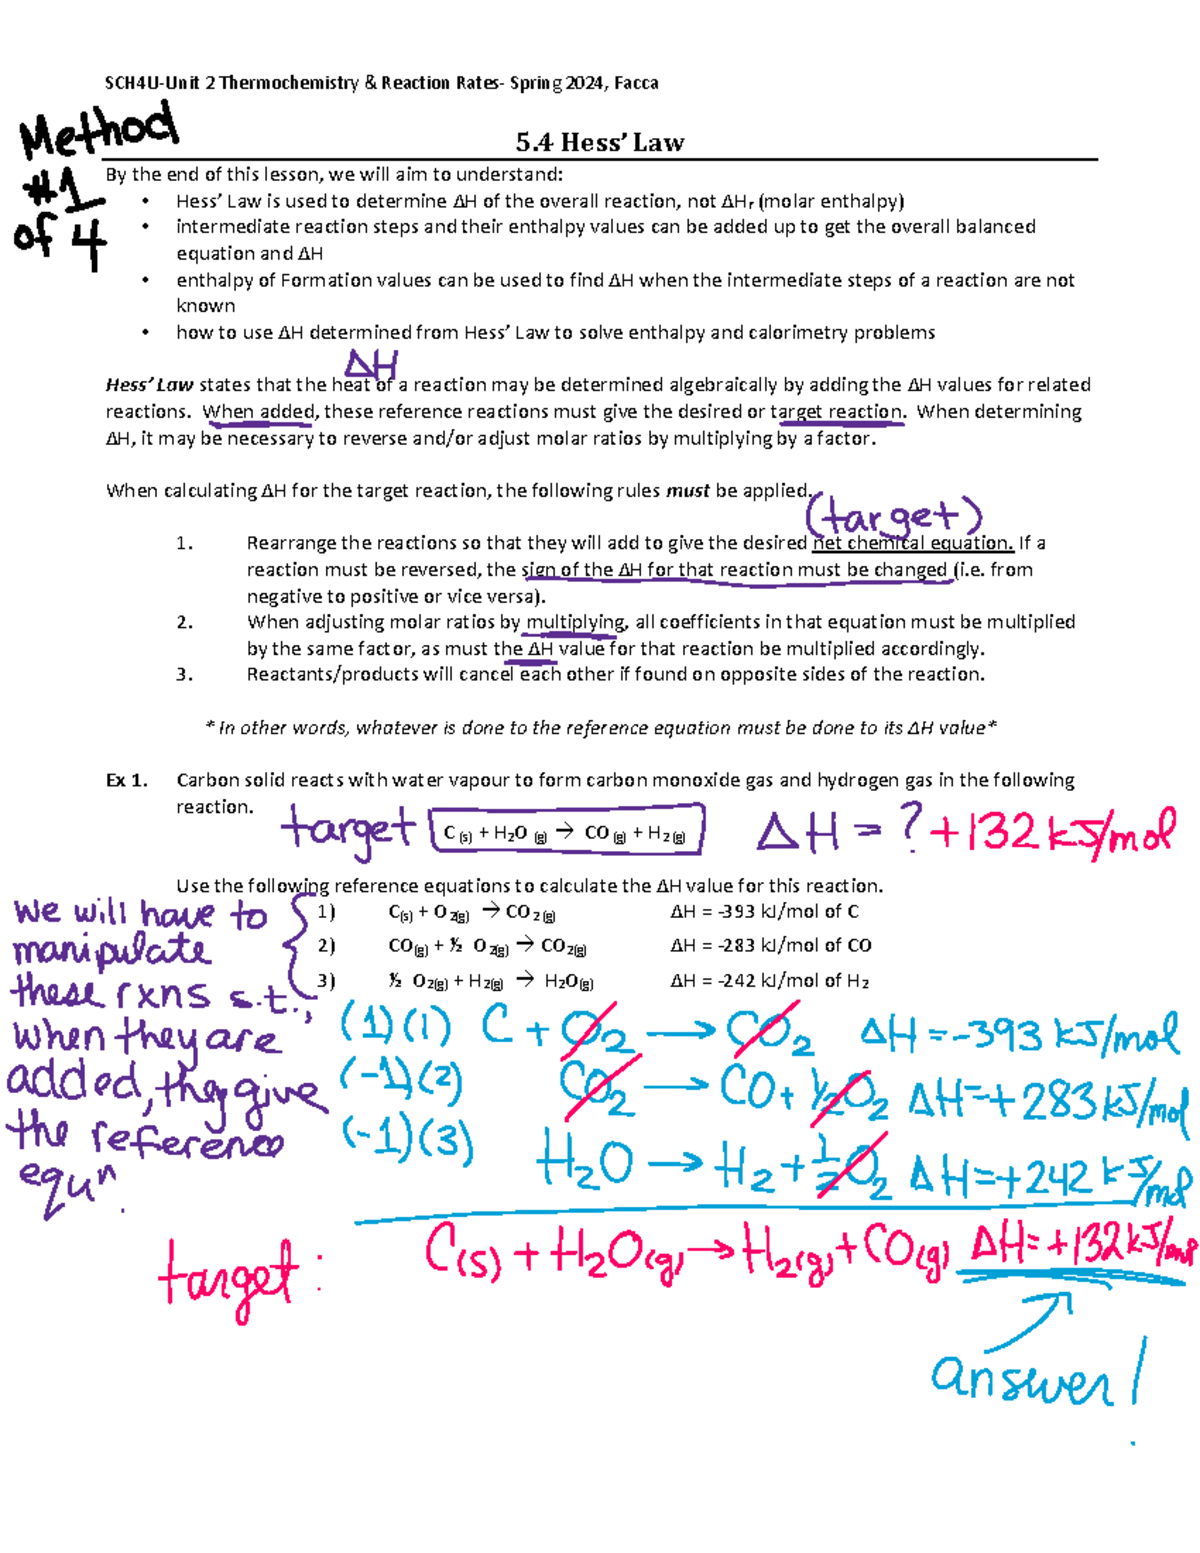 SCH4U-Unit 2 Thermochemistry & Reaction Rates- Spring 2024, Facca
Method
#1
of 4
5.4 Hess' Law
By the end of this lesson, we will aim to understand:
• Hess' Law is used to determine ΔH of the overall reaction, not ΔHr (molar enthalpy)
• intermediate reaction steps and their enthalpy values can be added up to get the overall balanced
equation and ΔH
• enthalpy of Formation values can be used to find ΔH when the intermediate steps of a reaction are not
known
• how to use ΔH determined from Hess' Law to solve enthalpy and calorimetry problems
ΔH
Hess' Law states that the heat of a reaction may be determined algebraically by adding the ΔH values for related
reactions. When added, these reference reactions must give the desired or target reaction. When determining
ΔH, it may be necessary to reverse and/or adjust molar ratios by multiplying by a factor.
When calculating ΔH for the target reaction, the following rules must be applied.
(target)
1. Rearrange the reactions so that they will add to give the desired net chemical equation. If a
reaction must be reversed, the sign of the ΔH for that reaction must be changed (i.e. from
negative to positive or vice versa).
2. When adjusting molar ratios by multiplying, all coefficients in that equation must be multiplied
by the same factor, as must the ΔH value for that reaction be multiplied accordingly.
3. Reactants/products will cancel each other if found on opposite sides of the reaction.
* In other words, whatever is done to the reference equation must be done to its ΔH value*
Ex 1. Carbon solid reacts with water vapour to form carbon monoxide gas and hydrogen gas in the following
reaction.
target C (s) + H2O (g) → CO (g) + H2 (g) ΔH = ? +132 kJ/mol
Use the following reference equations to calculate the ΔH value for this reaction.
1) C(s) + O2(g) → CO2 (g) ΔH = -393 kJ/mol of C
2) CO(g) + ½ O2(g) → CO2(g) ΔH = -283 kJ/mol of CO
3) ½ O2(g) + H2(g) → H2O(g) ΔH = -242 kJ/mol of H2
we will have to
manipulate
these rxns s.t.,
when they are
added, they give
the reference
equⁿ.
(1)(1) C + O2 → CO2 ΔH = -393 kJ/mol
(-1)(2) CO2 → CO + ½O2 ΔH = +283 kJ/mol
(-1)(3) H2O → H2 + ½O2 ΔH = +242 kJ/mol
target: C(s) + H2O(g) → H2(g) + CO(g) ΔH = +132 kJ/mol
answer!